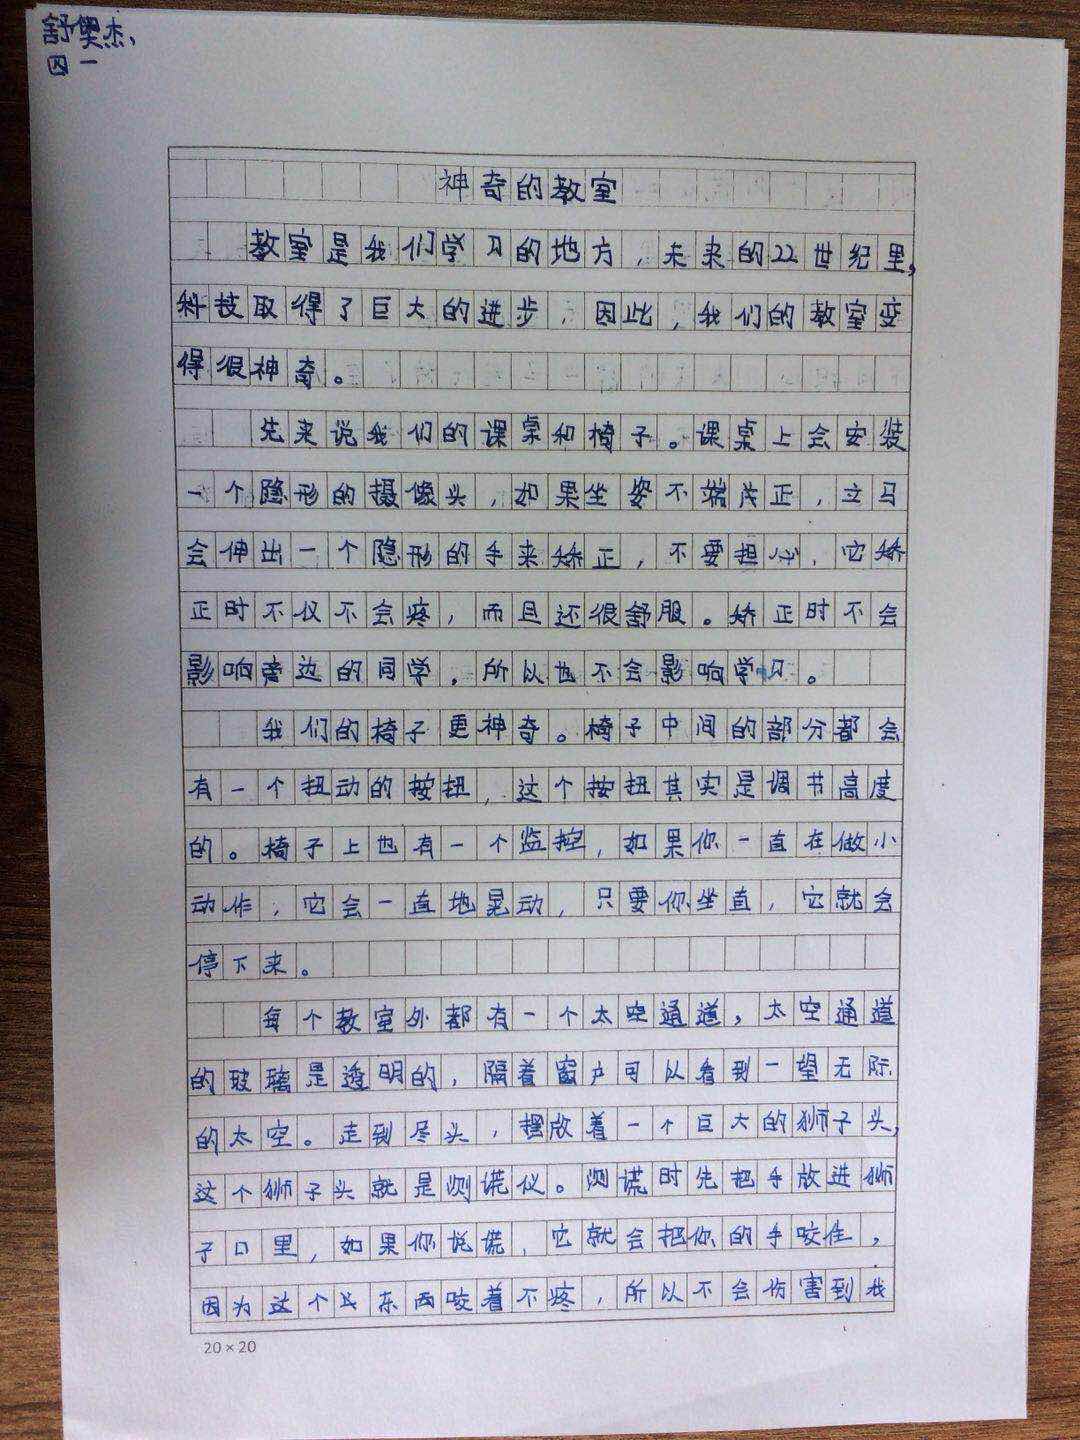 舒奥杰、
四一
神奇的教室
教室是我们学习的地方，未来的22世纪里，
科技取得了巨大的进步，因此，我们的教室变
得很神奇。
先来说我们的课桌和椅子。课桌上会安装
一个隐形的摄像头，如果坐姿不端正，立马
会伸出一个隐形的手来矫正，不要担心，它矫
正时不仅不会疼，而且还很舒服。矫正时不会
影响旁边的同学，所以也不会影响学习。
我们的椅子更神奇。椅子中间的部分都会
有一个扭动的按扭，这个按扭其实是调节高度
的。椅子上也有一个监控，如果你一直在做小
动作，它会一直地晃动，只要你坐直，它就会
停下来。
每个教室外都有一个太空通道，太空通道
的玻璃是透明的，隔着窗户可以看到一望无际
的太空。走到尽头，摆放着一个巨大的狮子头，
这个狮子头就是测谎仪。测谎时先把手放进狮
子口里，如果你说谎，它就会把你的手咬住，
因为这个东西咬着不疼，所以不会伤害到我
20×20